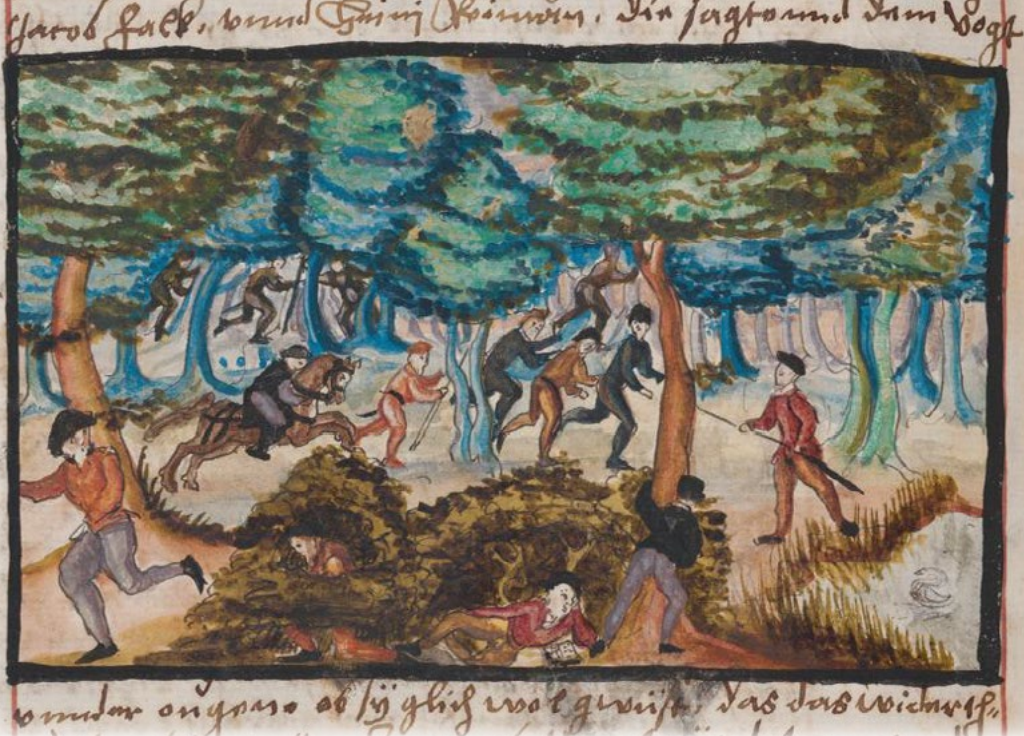 Jacob Falk, unnd Heini die sagtennd dem Vogt
unnder ougenn ob sÿ glich wol gwüst, das das widerth-